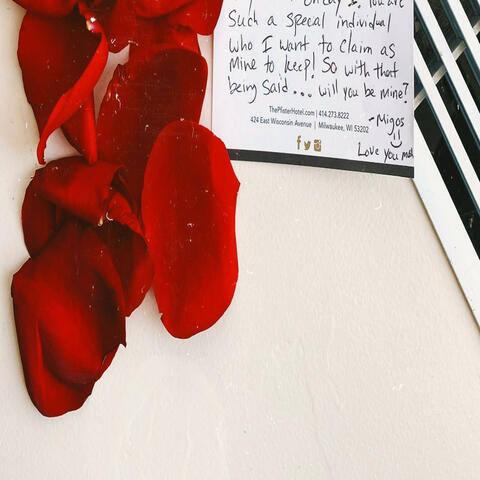 You are
Such a special individual
who I want to claim as
Mine to keep! So with that
being said... will you be mine?
ThePfisterHotel.com | 414.273.8222
424 East Wisconsin Avenue | Milwaukee, WI 53202
-Migos
Love you